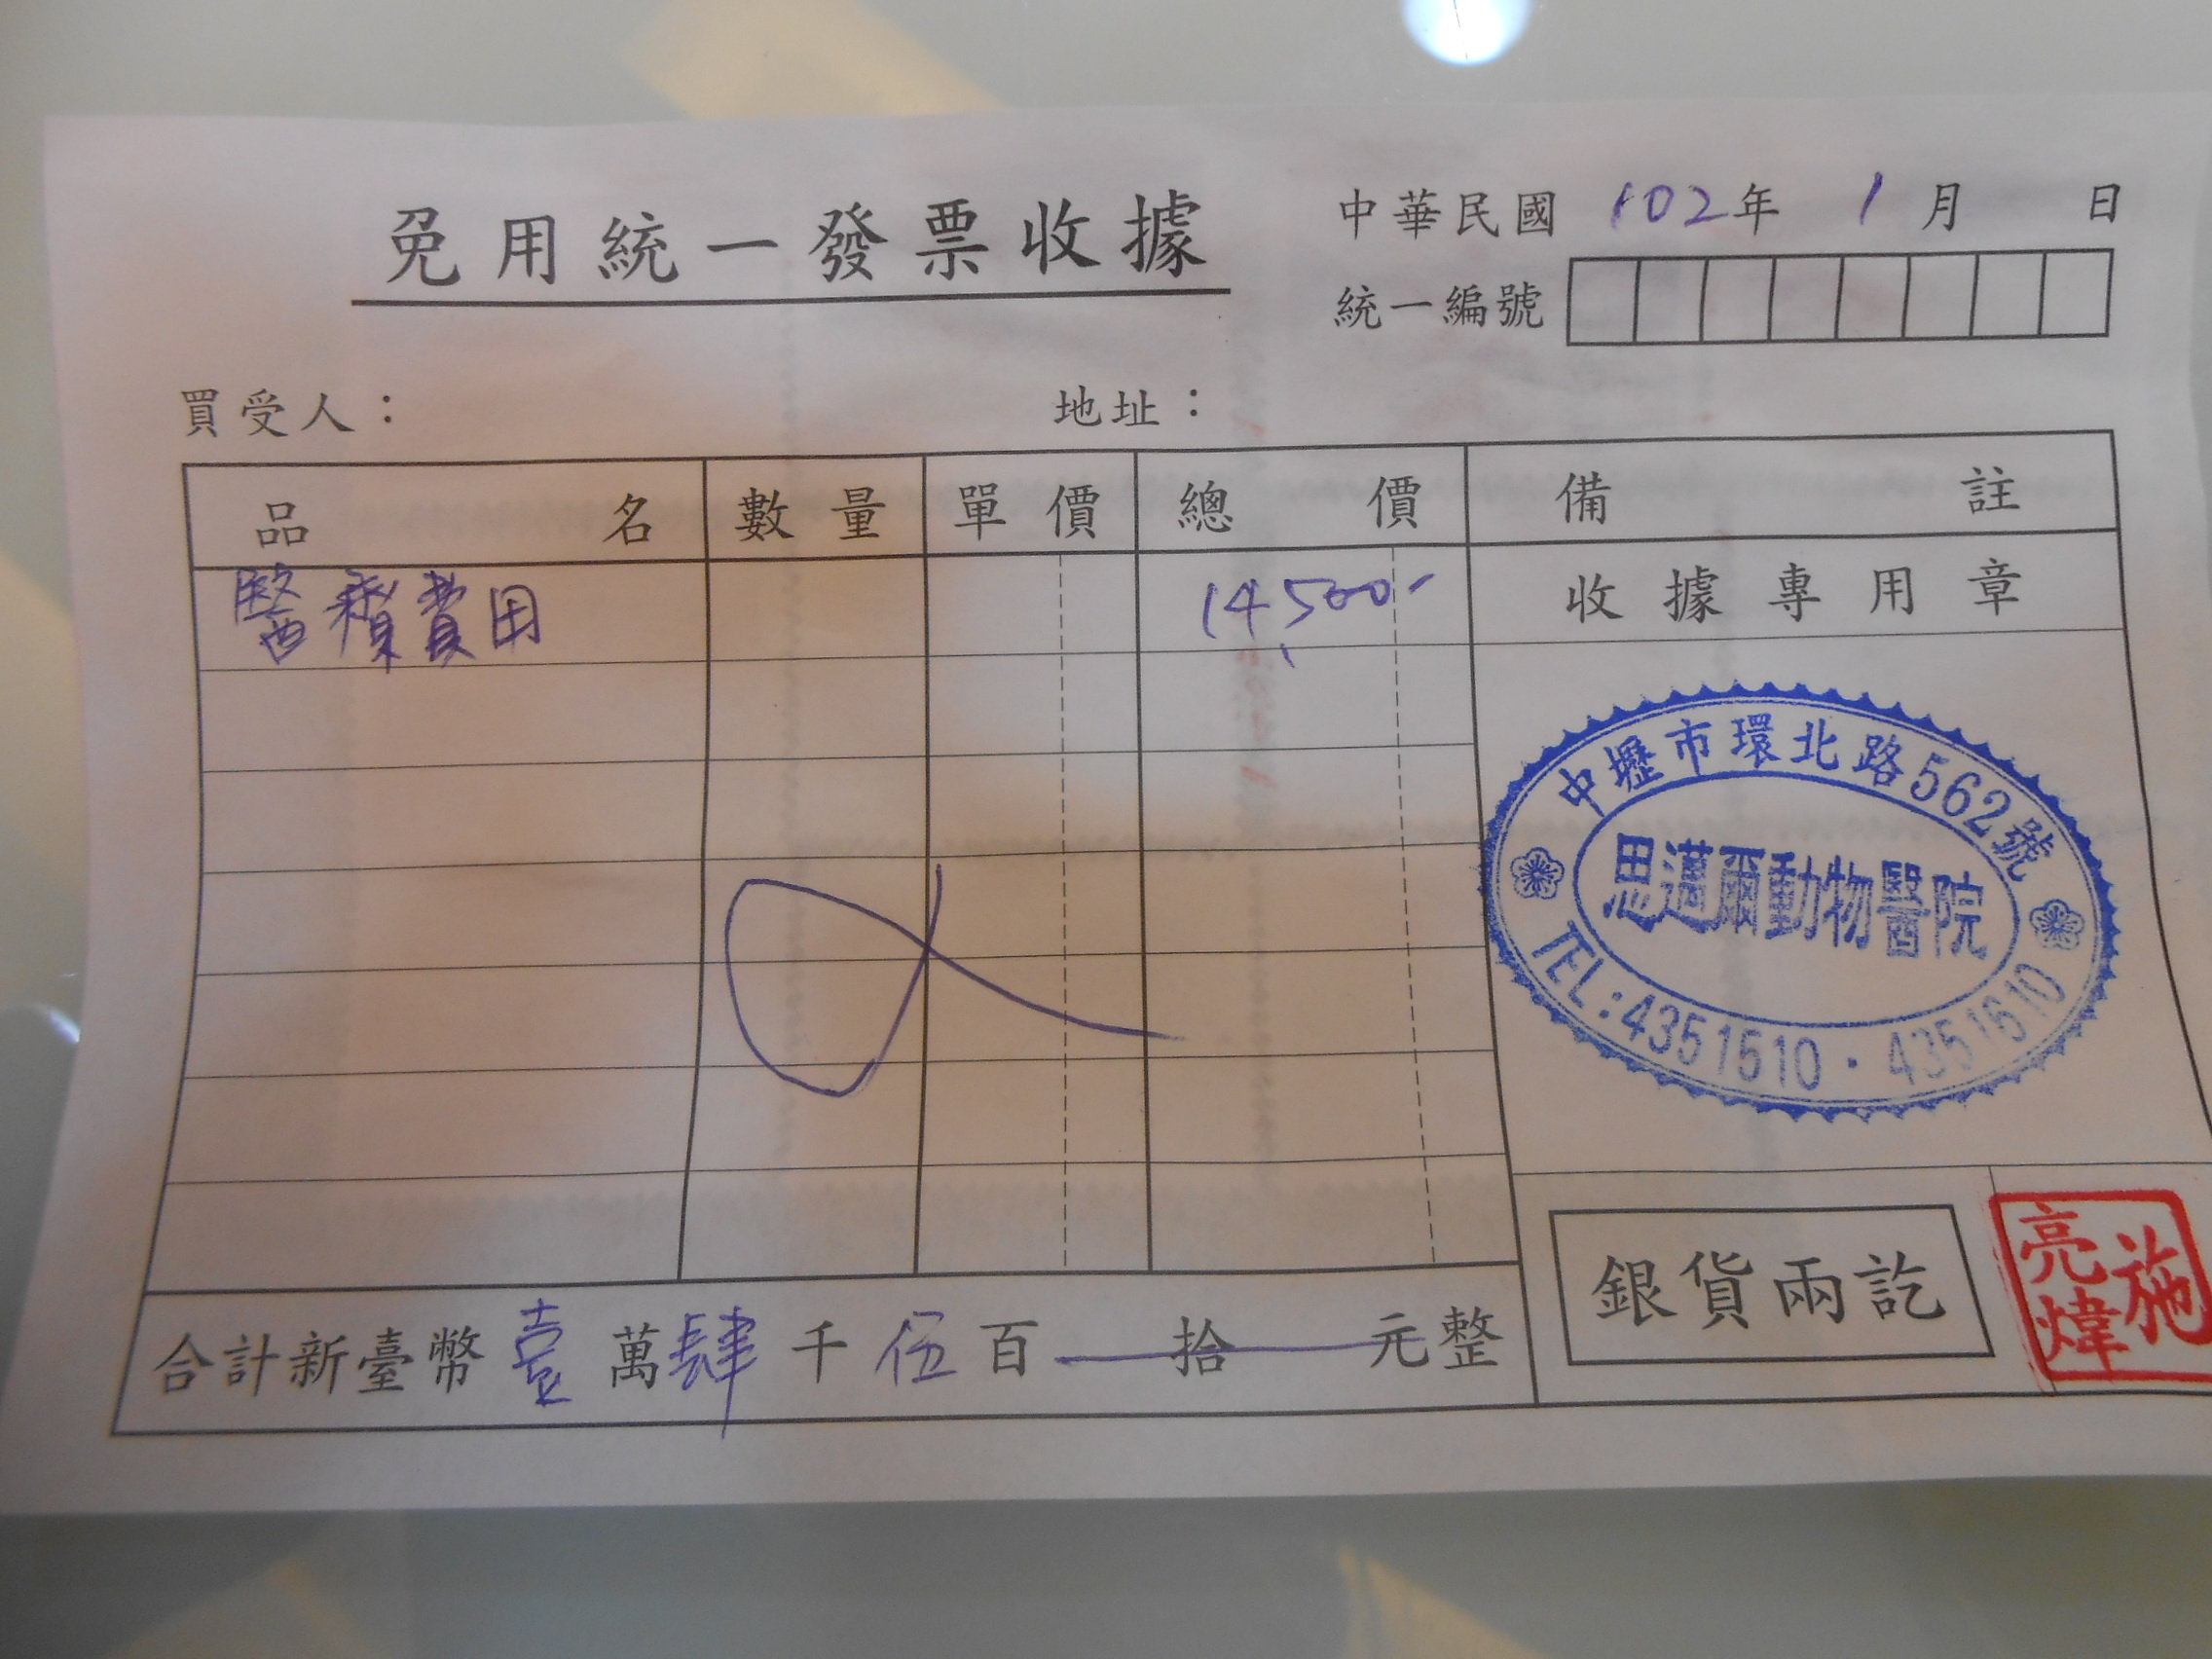 免用統一發票收據
中華民國 102年 1月 日
統一編號
買受人： 地址：
品名 數量 單價 總價 備註
醫療費用 14,500- 收據專用章
中壢市環北路562號
思邁爾動物醫院
TEL:4351510・4351610
合計新臺幣壹萬肆千伍百拾元整
銀貨兩訖
施亮煒